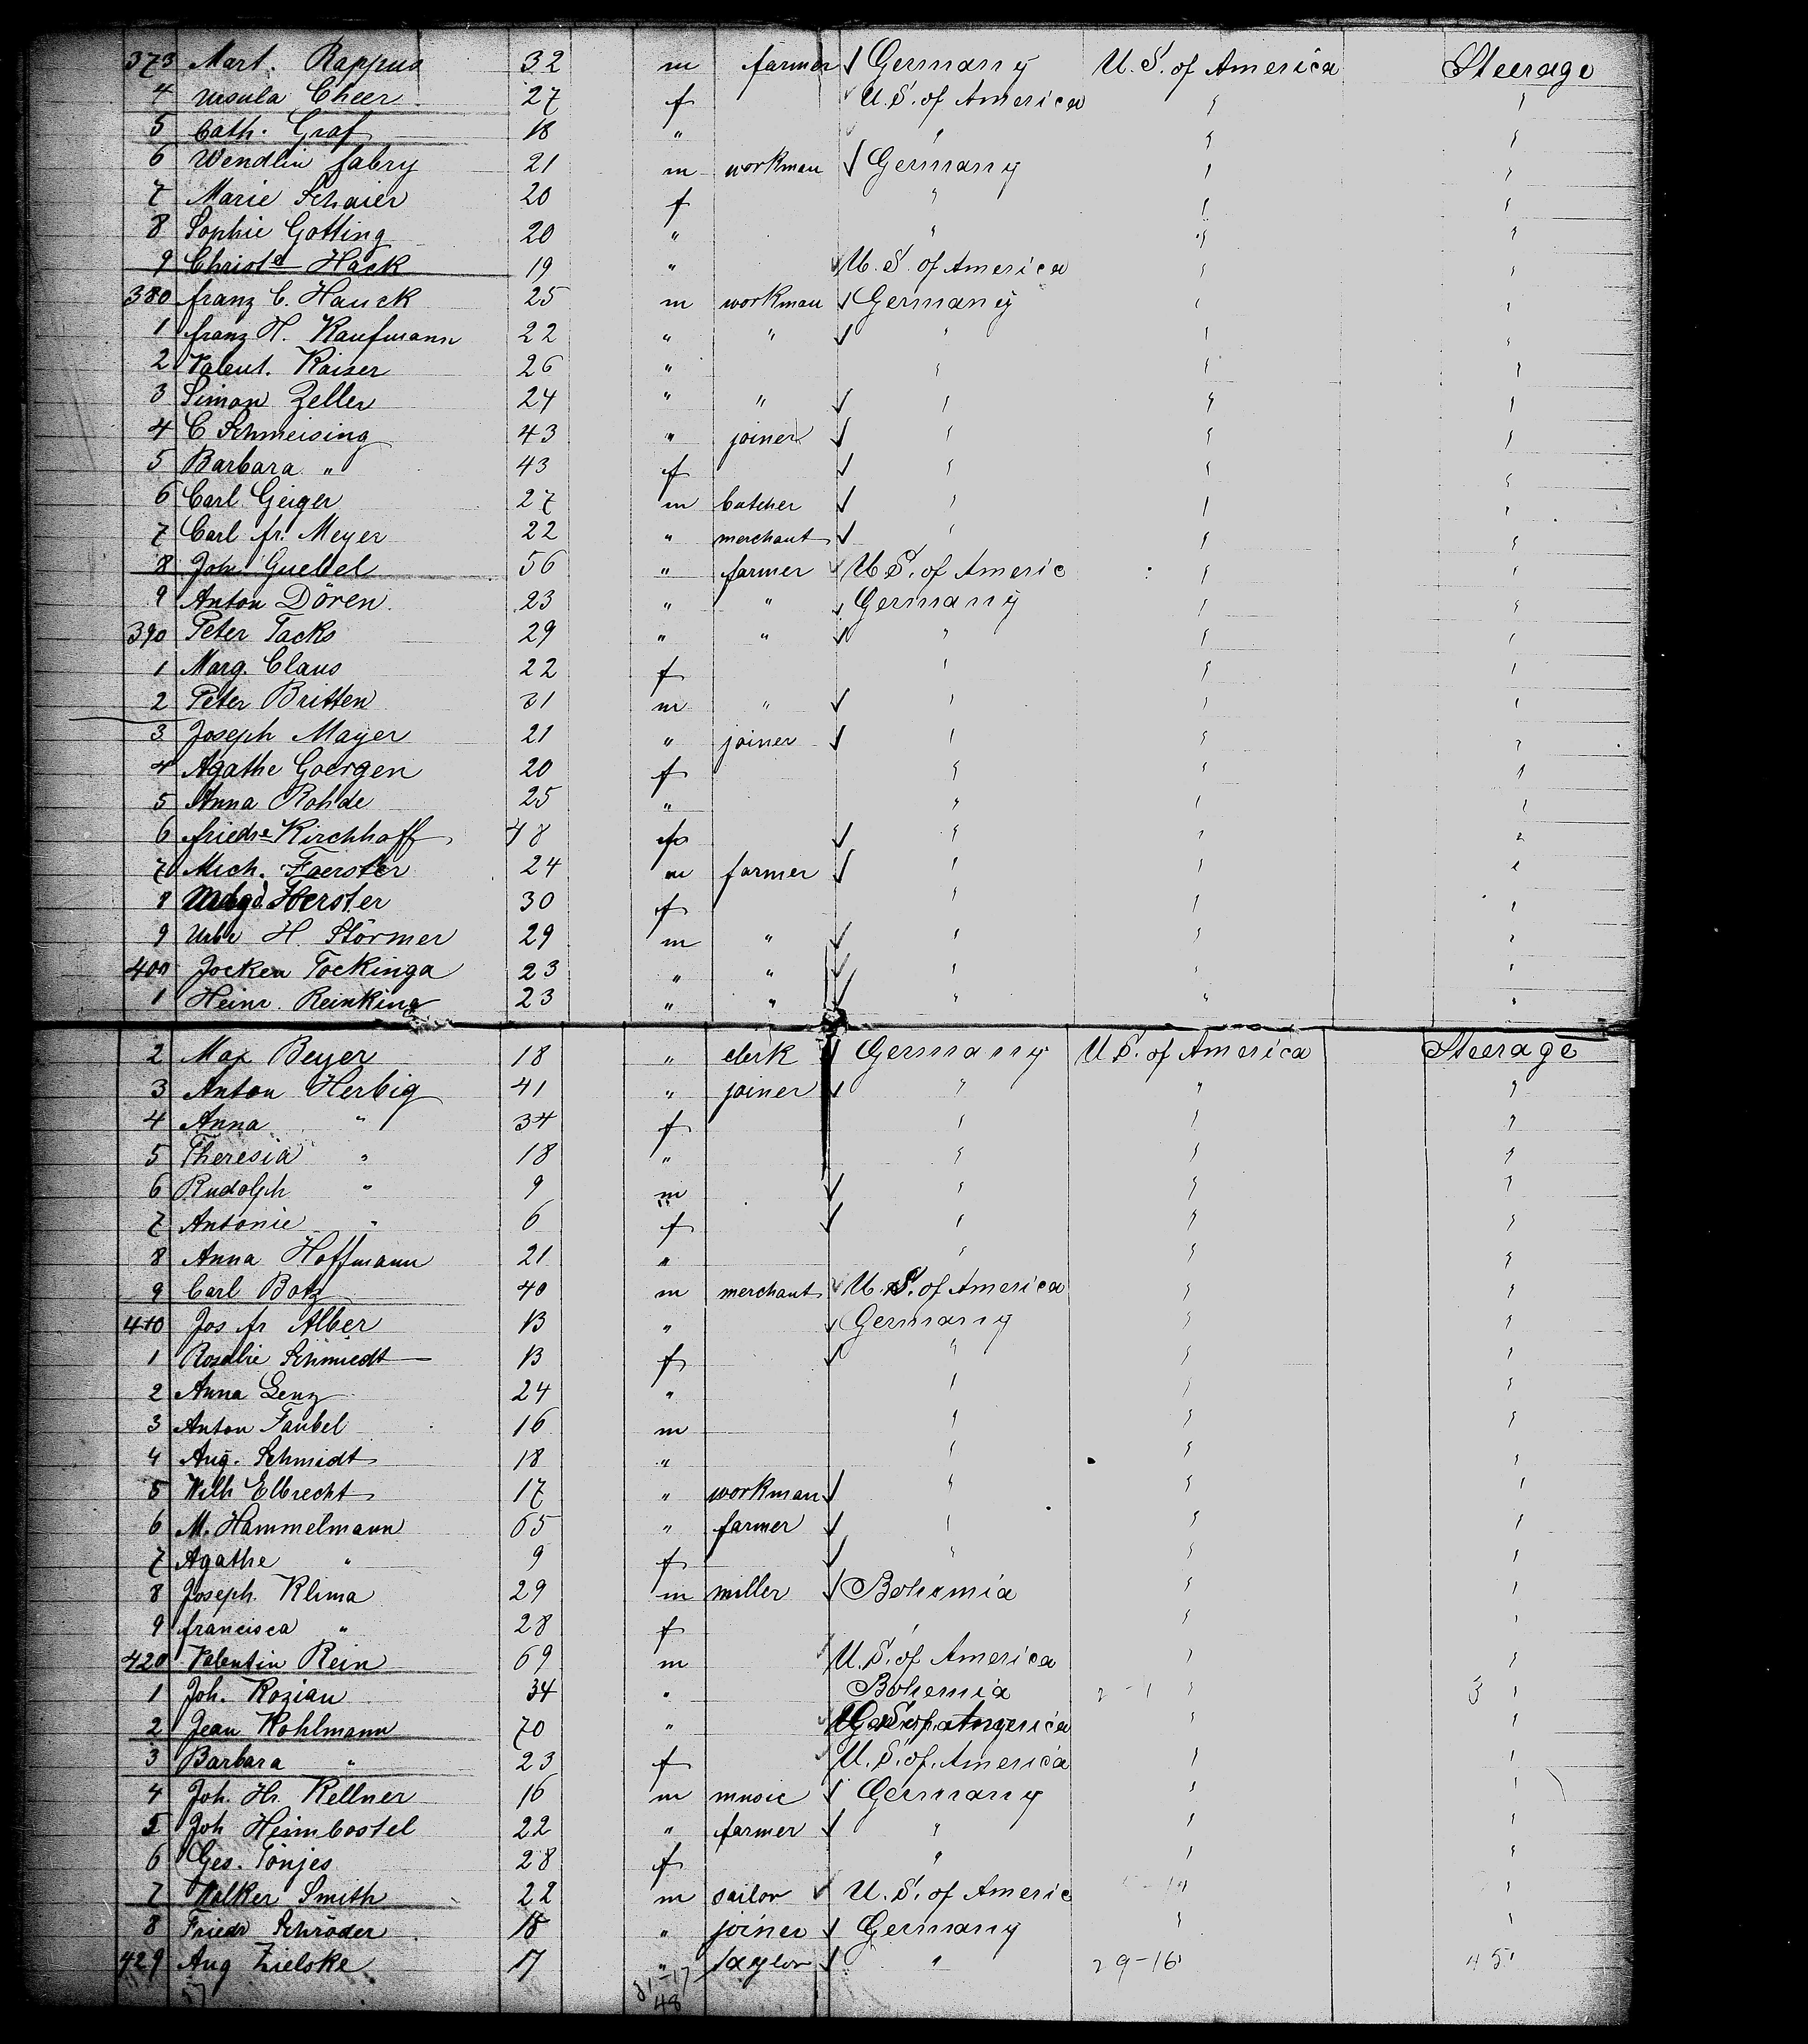 373 Mart. Rappus 32 m farmer √ Germany U. S. of America Steerage
4 Ursula Cheer 27 f √ U. S. of America " "
5 Cath. Graf 18 " " " "
6 Wendlin Fabry 21 m workman √ Germany " "
7 Marie Schaier 20 f " " "
8 Sophie Gotting 20 " " " "
9 Christe Hack 19 " √ U. S. of America " "
380 Franz C. Hauck 25 m workman √ Germany " "
1 Franz H. Kaufmann 22 " " √ " " "
2 Valent. Kaiser 26 " " " "
3 Simon Zeller 24 " " √ " " "
4 C Schmeising 43 " joiner √ " " "
5 Barbara " 43 f √ " " "
6 Carl Geiger 27 m butcher √ " " "
7 Carl Fr. Meyer 22 " merchant √ " " "
8 Joh. Guebel 56 " farmer √ U. S. of Americ " "
9 Anton Dören 23 " " √ Germany " "
390 Peter Tacks 29 " " √ " " "
1 Marg. Claus 22 f " " "
2 Peter Britten 31 m " √ " " "
3 Joseph Mayer 21 " joiner √ " " "
4 Agathe Goergen 20 f " " "
5 Anna Rohde 25 " " " "
6 Friedre Kirchhoff 48 f √ " " "
7 Mich. Foerster 24 m farmer √ " " "
8 Herster 30 f " " "
9 H. Störmer 29 m " √ " " "
400 Jocken Tockinga 23 " " √ " " "
1 Heinr. Reinking 23 " " √ " " "
2 Max Beyer 18 " clerk √ Germany U S. of America Steerage
3 Anton Herbig 41 " joiner √ " " "
4 Anna " 34 f " " "
5 Theresia " 18 " " " "
6 Rudolph " 9 m √ " " "
7 Antonie " 6 f √ " " "
8 Anna Hoffmann 21 " " " "
9 Carl Botz 40 m merchant √ U. S. of America " "
410 Jos Fr Alber 13 " √ Germany " "
1 Rosalie Schmiedt 13 f √ " " "
2 Anna Lenz 24 " " " "
3 Anton Faubel 16 m " " "
4 Aug. Schmidt 18 " " " "
5 Wilh Elbrecht 17 " workman √ " " "
6 M. Hammelmann 65 " farmer √ " " "
7 Agathe " 9 f √ " " "
8 Joseph Klima 29 m miller √ Bohemia " "
9 Francisca " 28 f " " "
420 Valentin Rein 69 m √ U. S. of America " "
1 Joh. Kozian 34 " Bohemia " "
2 Jean Kohlmann 70 " √ U. S. of America " "
3 Barbara " 23 f √ U. S. of America " "
4 Joh. Hr. Kellner 16 m music √ Germany " "
5 Joh Heimbostel 22 " farmer √ " " "
6 Ges. Tönjes 28 f " " "
7 Walker Smith 22 m sailor √ U. S. of Americ " "
8 Friedr Schröder 18 " joiner √ Germany " "
429 Aug Zielske 17 " taylor √ " 29-16 45
31-17
48